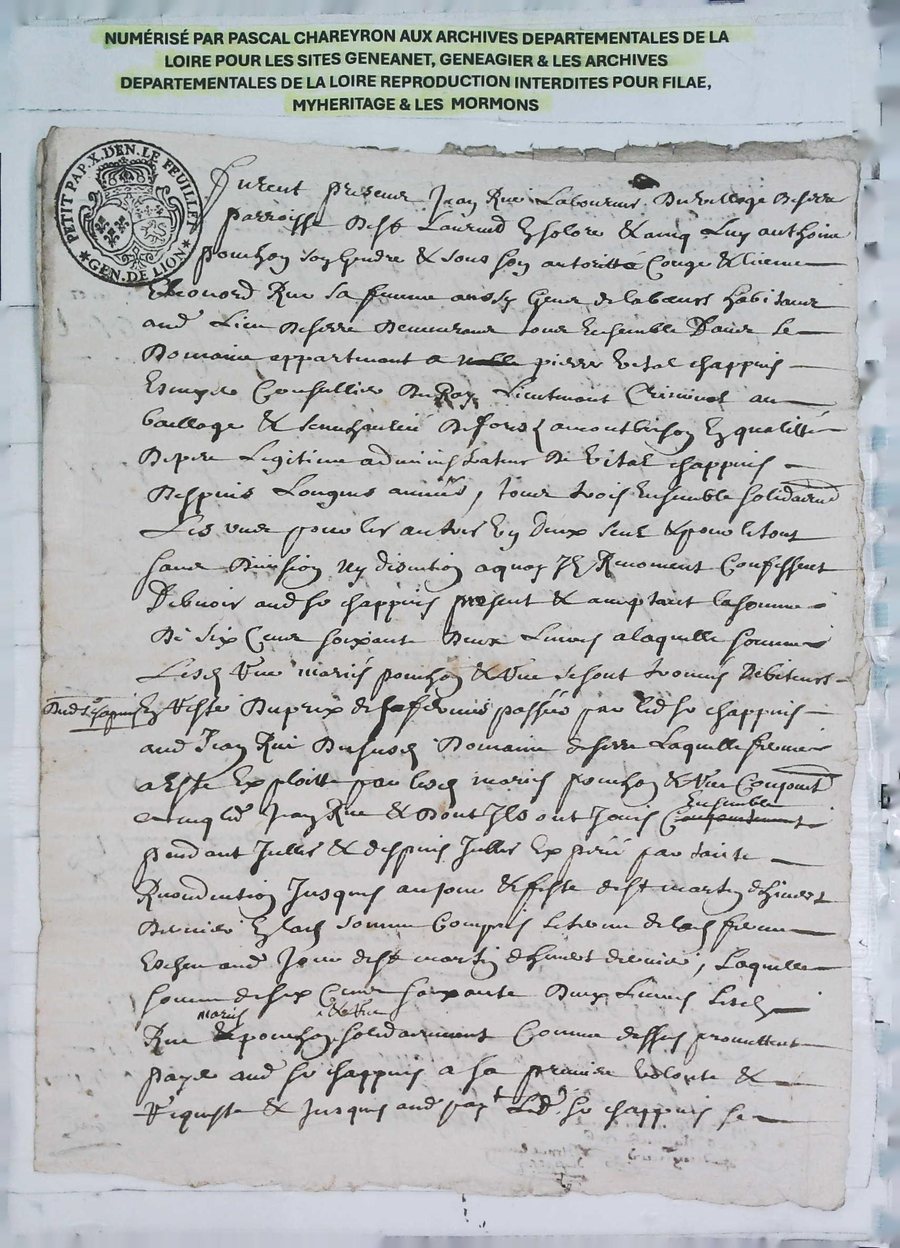 NUMÉRISÉ PAR PASCAL CHAREYRON AUX ARCHIVES DEPARTEMENTALES DE LA
LOIRE POUR LES SITES GENEANET, GENEAGIER & LES ARCHIVES
DEPARTEMENTALES DE LA LOIRE REPRODUCTION INTERDITES POUR FILAE,
MYHERITAGE & LES MORMONS
PETIT PAP. X. DEN. LE FEUILLET
GEN. DE LION
furent presens Jean Rue Laboureur du village de serre
parroisse de st Laurend & avecq Luy anthoine
ponchon son gendre & sous son autoritté Conge & licence
Rue sa femme aussy gens de labeurs habitans
aud Lieu de serre demeurans tous Ensemble dans le
Domaine appartenant a pierre vital chappuis
Escuyer Conseillier du Roy Lieutenant Criminel au
bailliage & de forest a montbrison En qualitté
de pere Legitime administrateur de vital chappuis
Despuis Longues années, tous trois Ensemble solidairemt
Les uns pour les autres un deux seul & pour le tout
sans division ny discution a quoy Ils Renoncent Confessent
Debvoir aud sr chappuis present & acceptant la somme
De six Cens soixante deux Livres a laquelle somme
Lesd Rue mariés ponchon & Rue se sont trouvés debiteurs
dud sr chapuis
En reste du prix de sa ferme passée par led sr chappuis
aud Jean Rue du susd Domaine de serre Laquelle ferme
a Esté Exploitté par lesd mariés ponchon & Rue Conjointt
avecq led Jean Rue & dont Ils ont Jouis
Ensemble
pendant Icelle & despuis Icelle Expiré par tacite
Reconduction Jusques au jour & feste de st martin d'hiver
Dernier En lad somme Compris le terme de lad ferme
Escheu aud Jour de st martin d'hiver dernier, Laquelle
somme de six Cens soixante deux Livres Lesd
mariés & Rue
Rue ponchon solidairement Comme dessus promettent
payer aud sr chappuis a sa premiere volonte &
Requeste & Jusques aud payt Led sr chappuis se